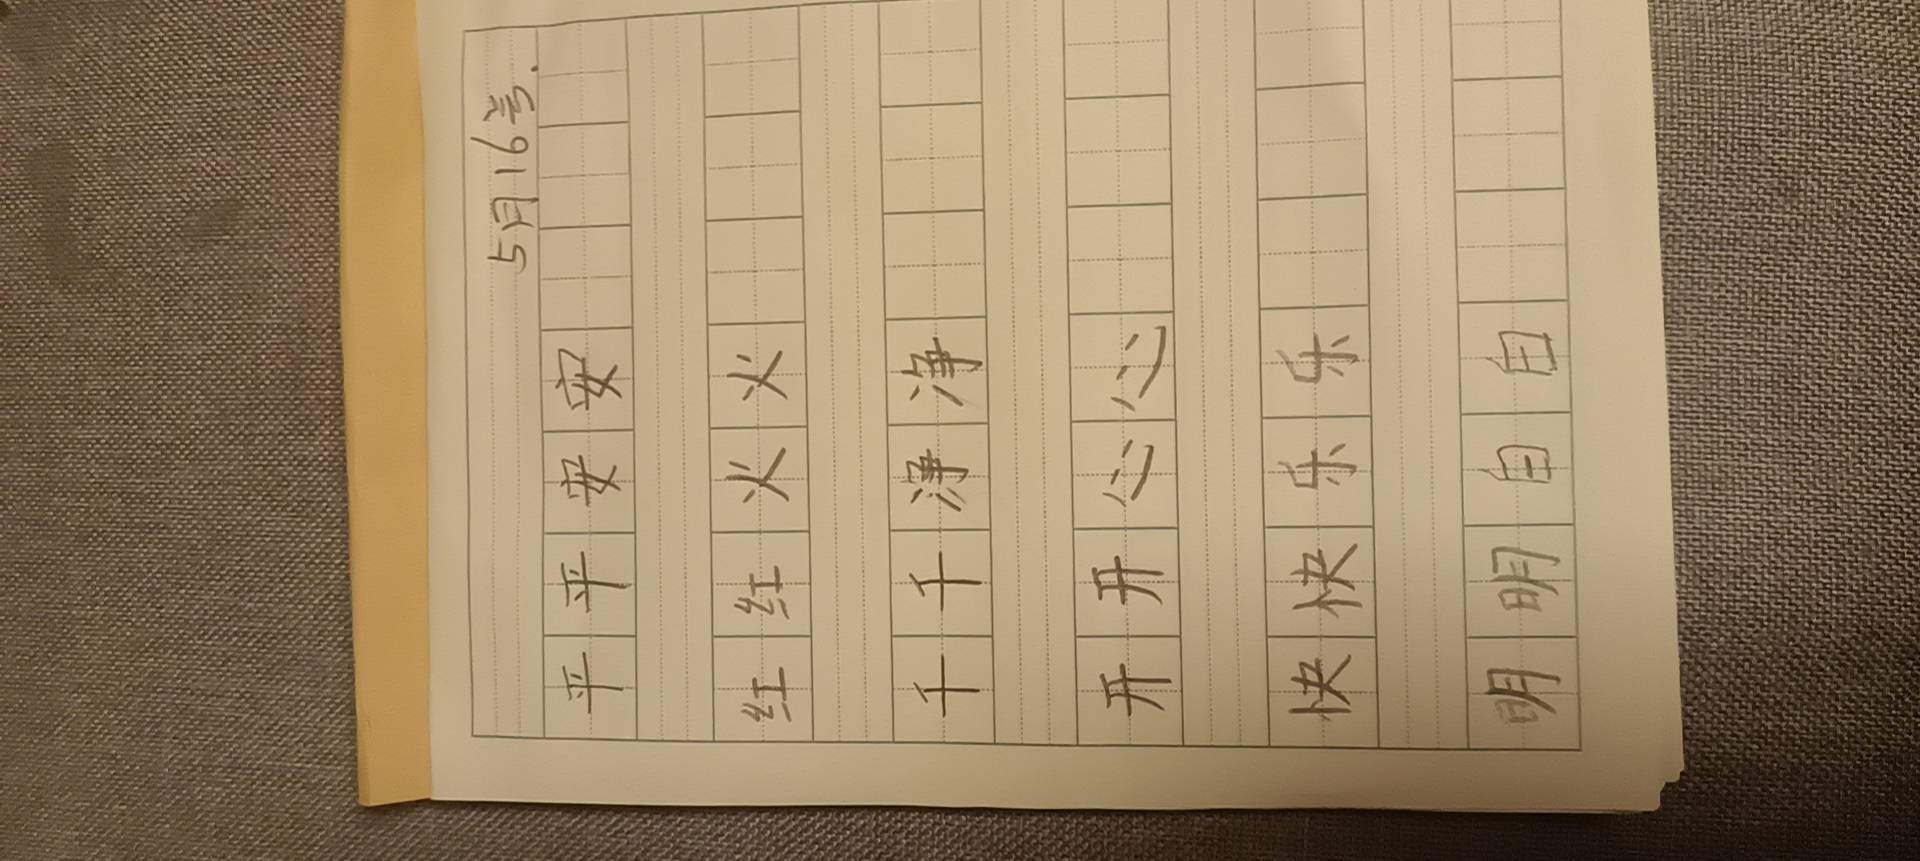 5月16号.
平平安安
红红火火
干干净净
开开心心
快快乐乐
明明白白